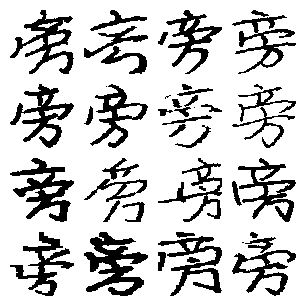 旁旁旁旁
旁旁旁旁
旁旁旁旁
旁旁旁旁